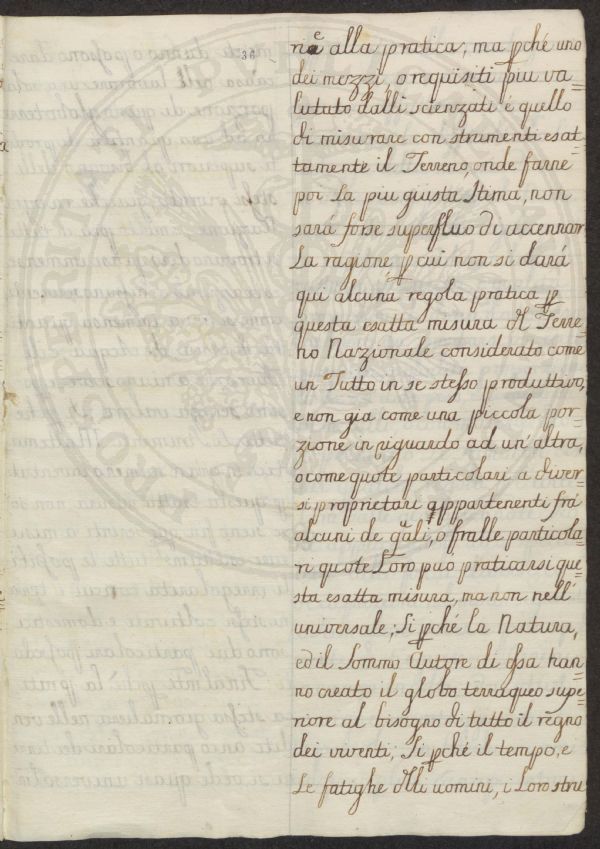 36
rie alla pratica; ma pché uno
dei mezzi, o requisiti piu va=
lutato dalli scienzati é quello
di misurare con strumenti esat=
tamente il Terreno, onde farne
poi la piu giusta Stima, non
sará forse superfluo di accennar
La ragione p cui non si dará
qui alcuna regola pratica p
questa esatta misura dl Terre=
no Nazionale considerato come
un Tutto in se stesso produttivo,
e non gia come una piccola por=
zione in riguardo ad un'altra,
o come quote particolari a diver=
si proprietari appartenenti frá
alcuni de quali, o fralle particola=
ri quote Loro puo praticarsi que=
sta esatta misura, ma non nell'
universale; Si pché la Natura,
ed il Sommo Autore di essa han=
no creato il globo terraqueo supe=
riore al bisogno di tutto il regno
dei viventi; Si pché il tempo, e
Le fatighe dlli uomini, i Loro stru